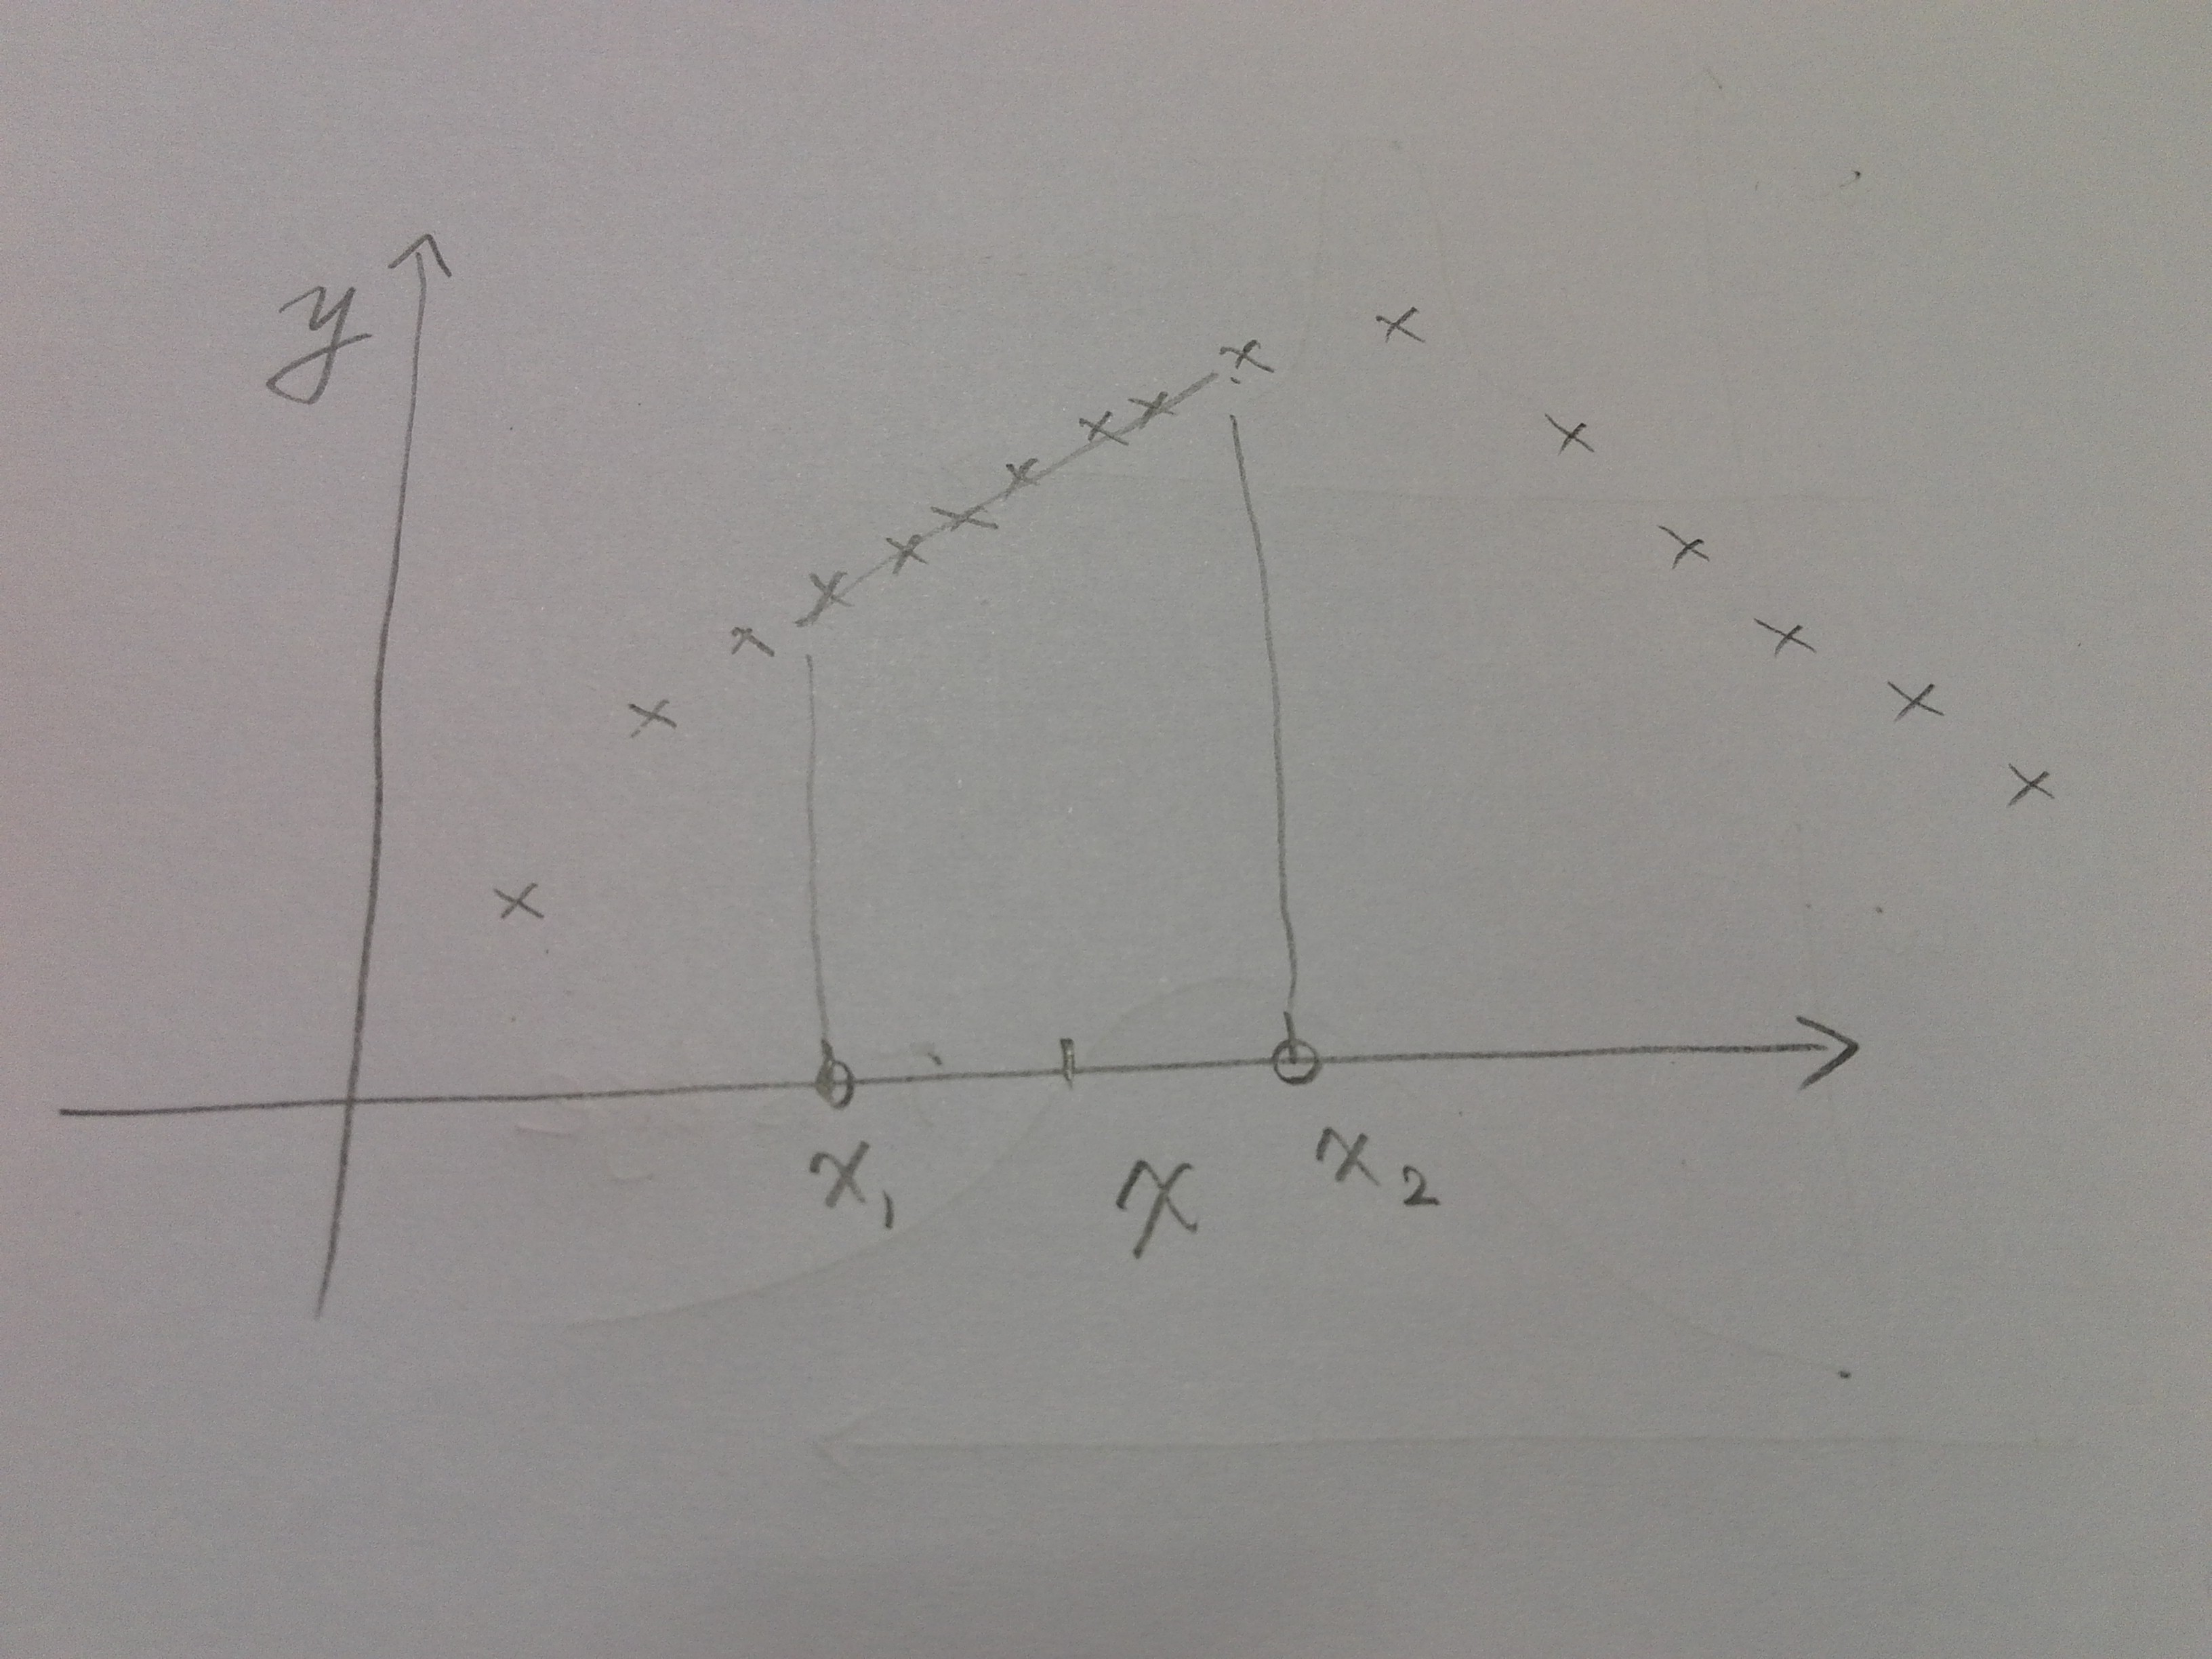 y
x₁ x x₂